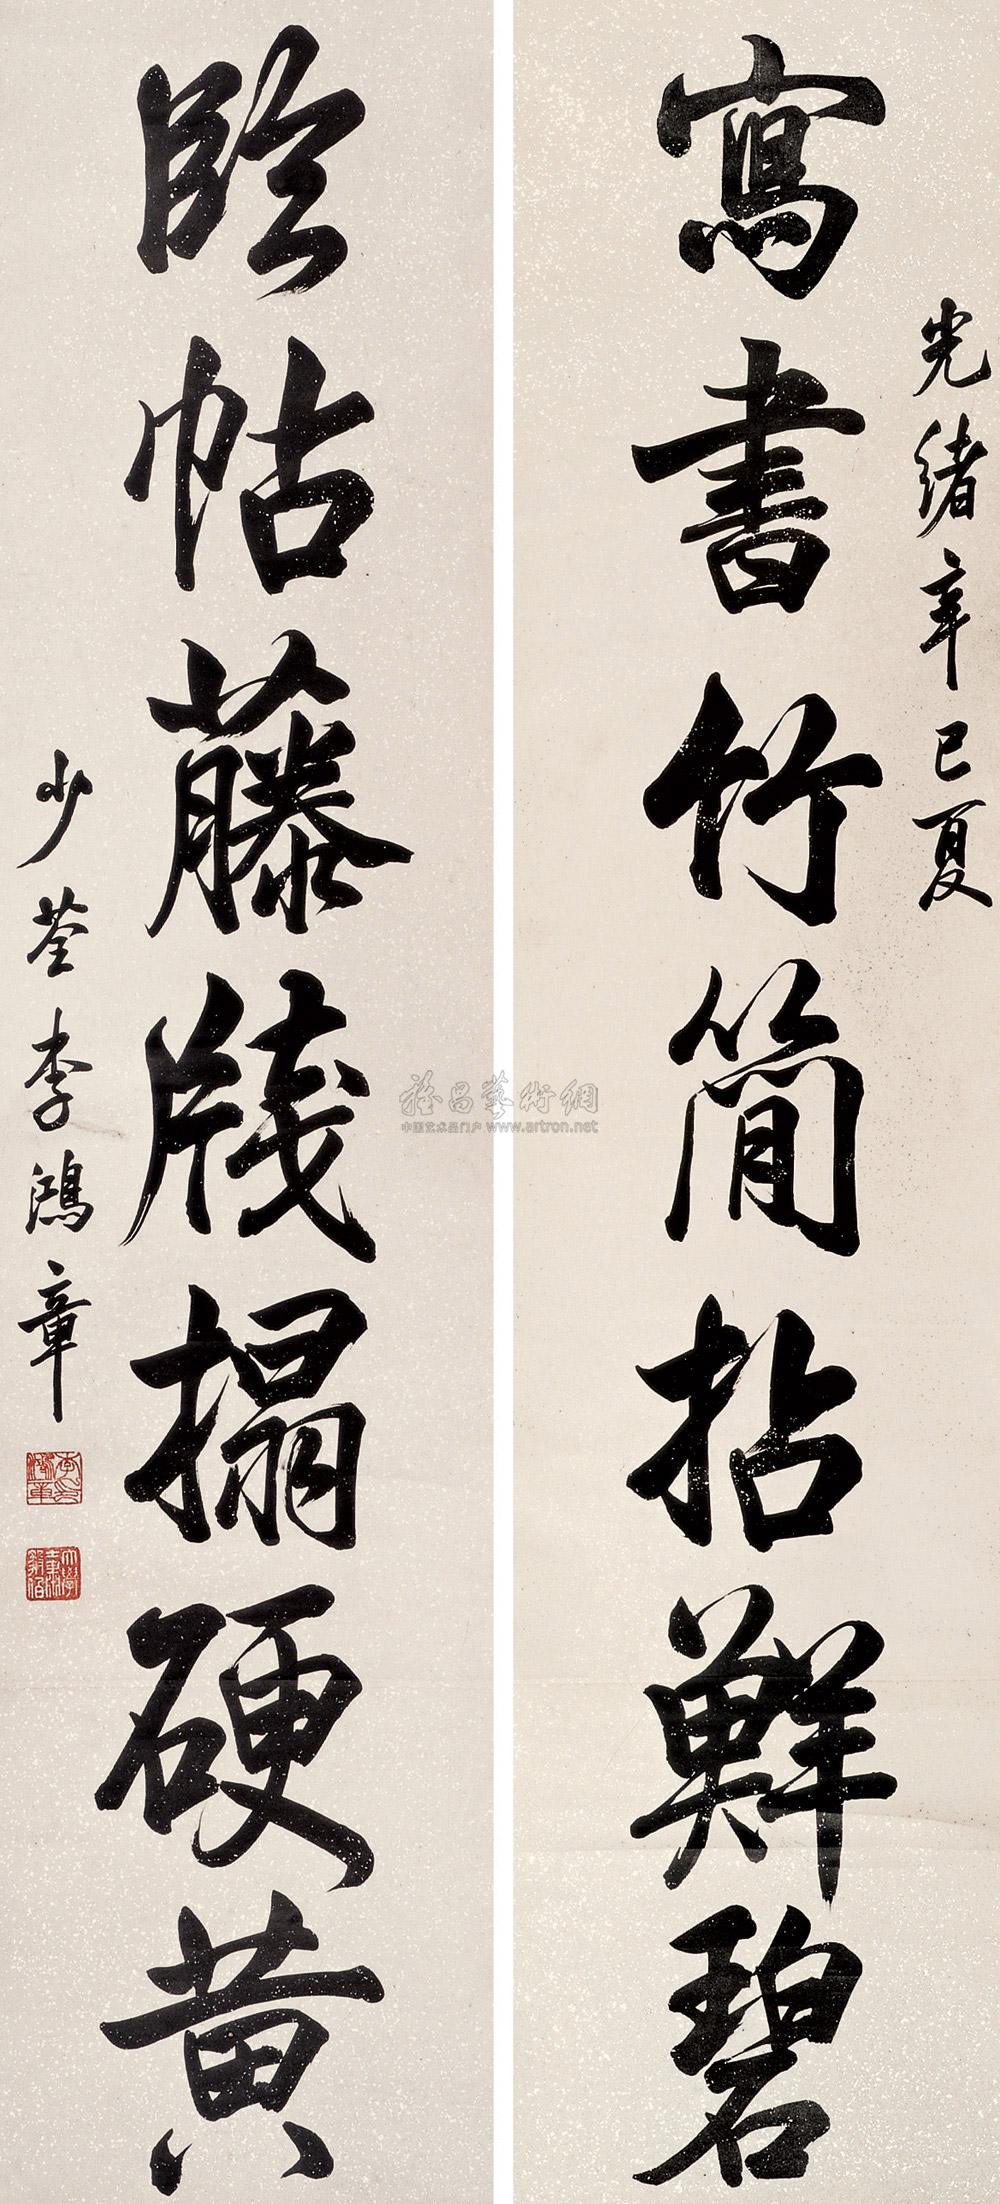 光緒辛巳夏
寫書竹簡拈鮮碧
臨帖藤牋搨硬黄
少荃李鴻章
雅昌藝術網
中国艺术品门户 www.artron.net